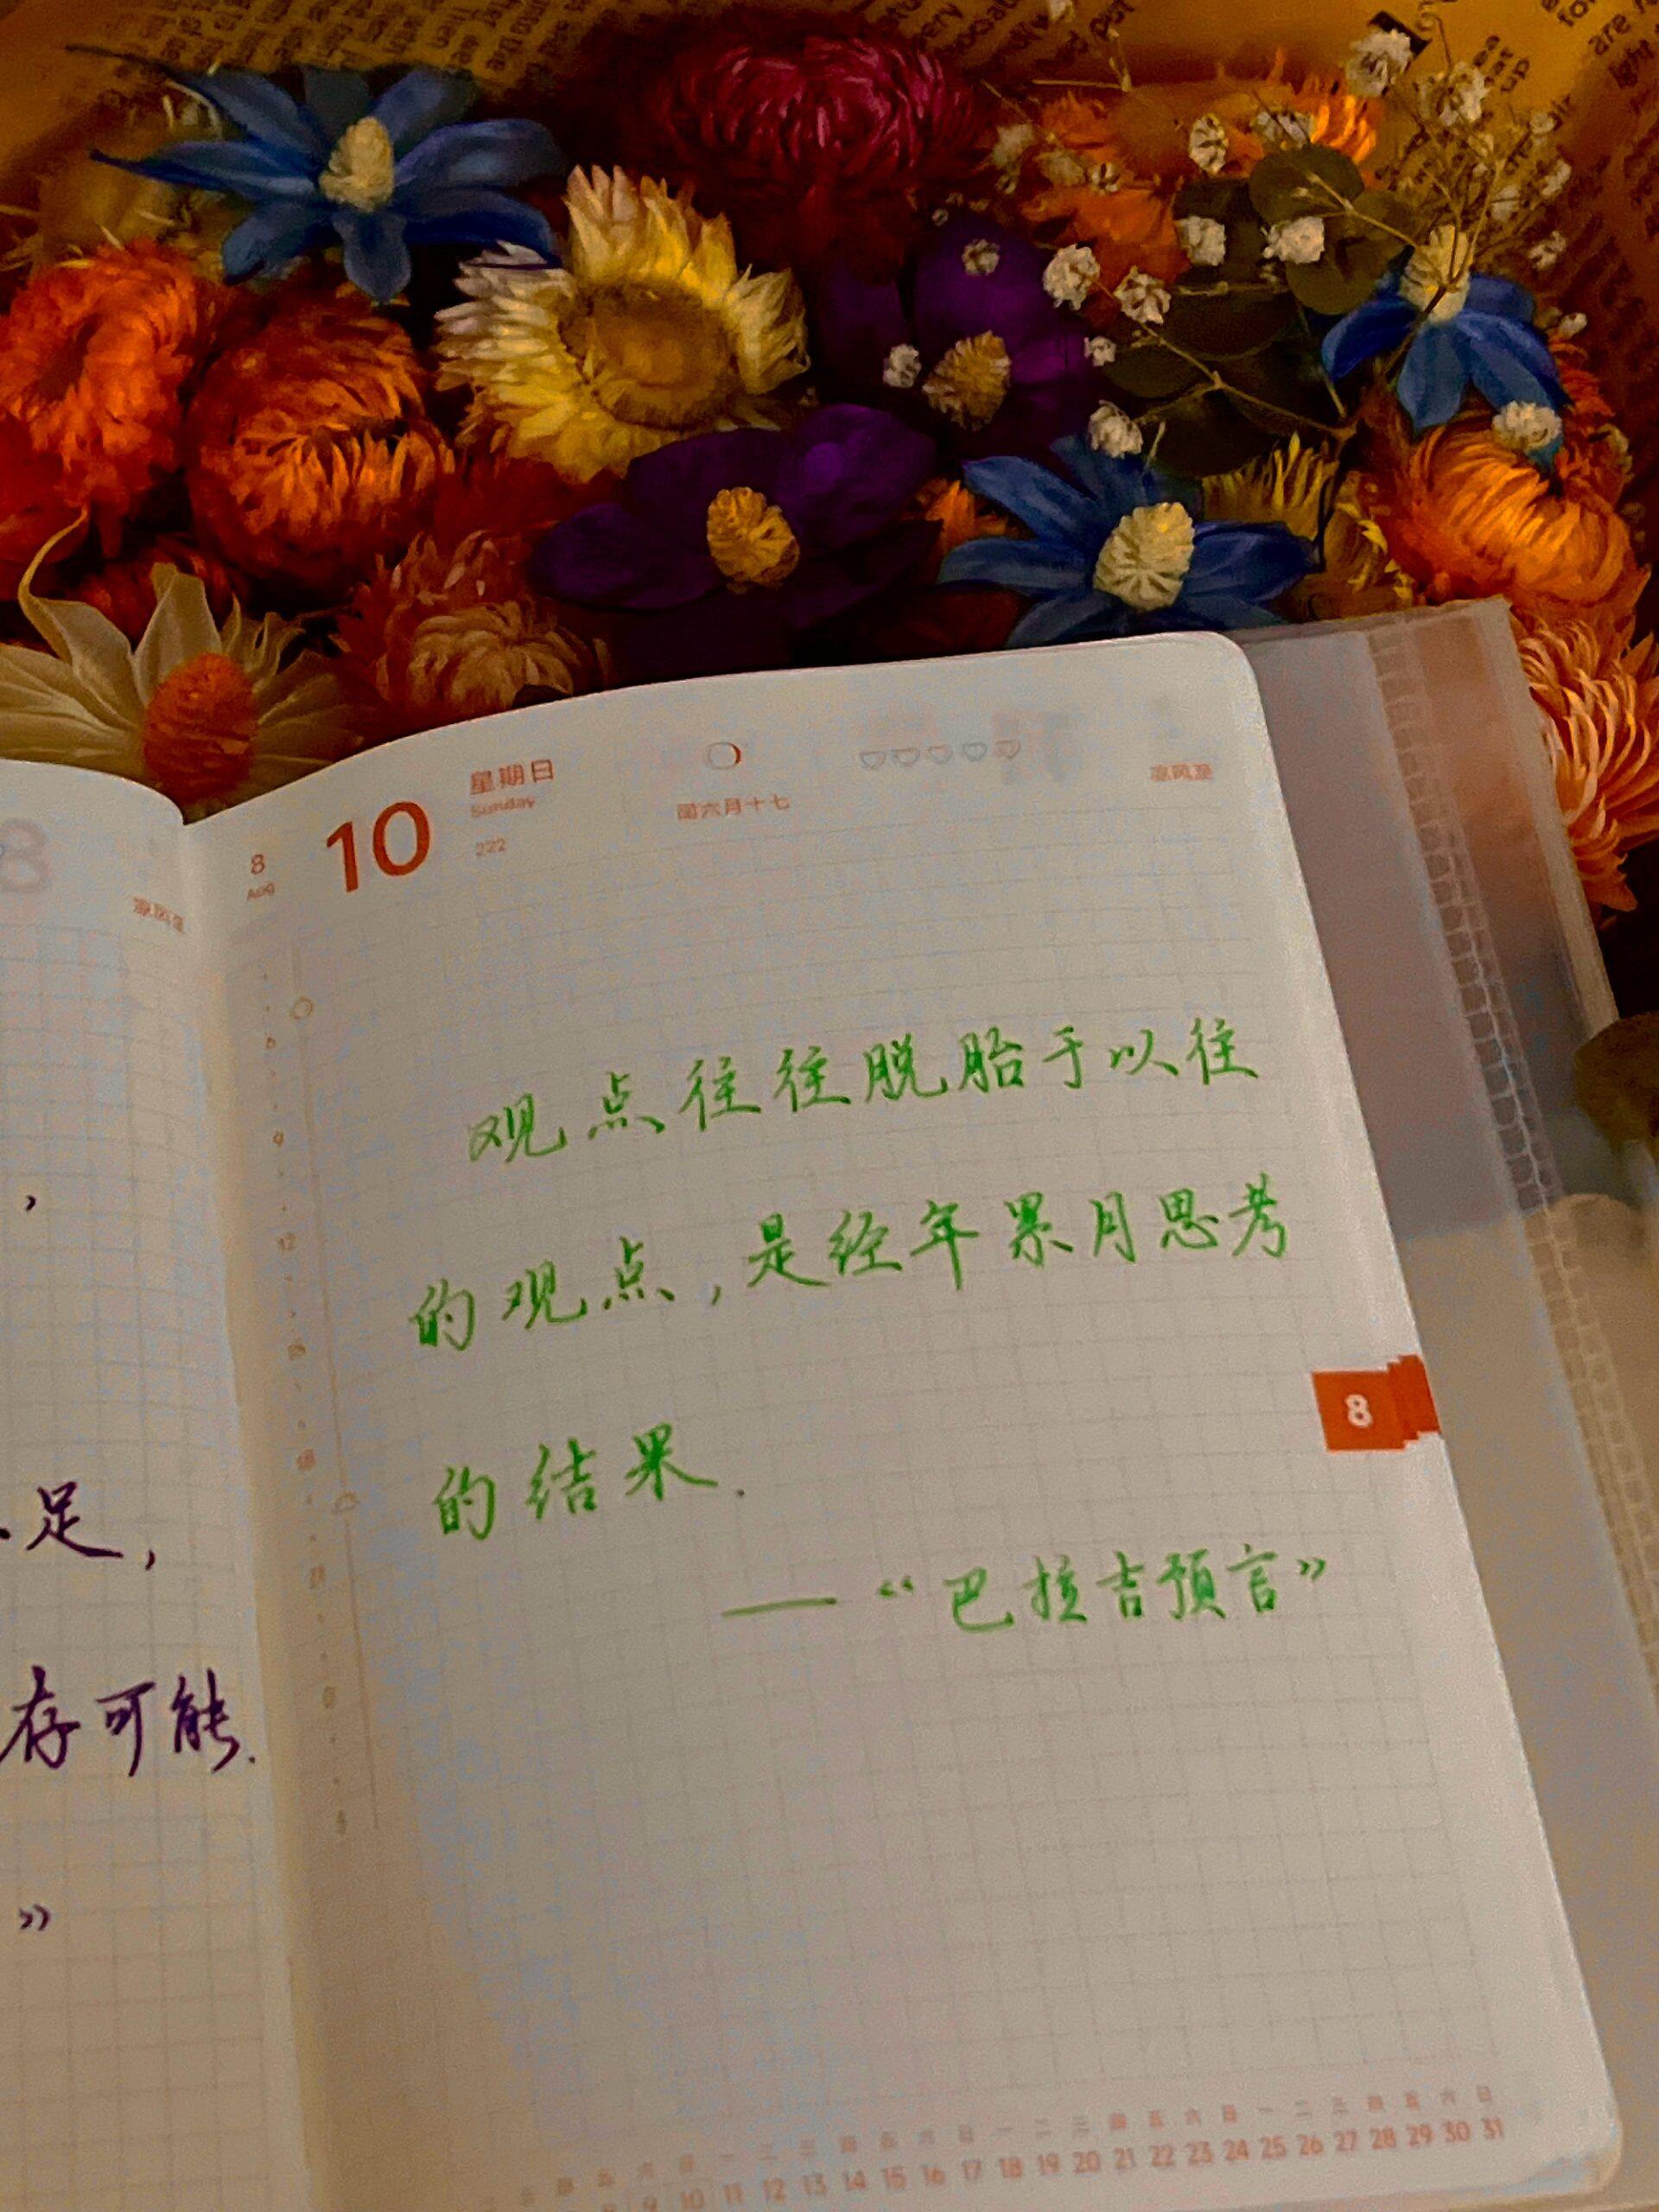 8
AUG
10
星期日
Sunday
222
闰六月十七
凉风至
观点往往脱胎于以往
的观点,是经年累月思考
的结果.
——“巴拉吉预言”
8
足,
存可能.
”
9 10 11 12 13 14 15 16 17 18 19 20 21 22 23 24 25 26 27 28 29 30 31